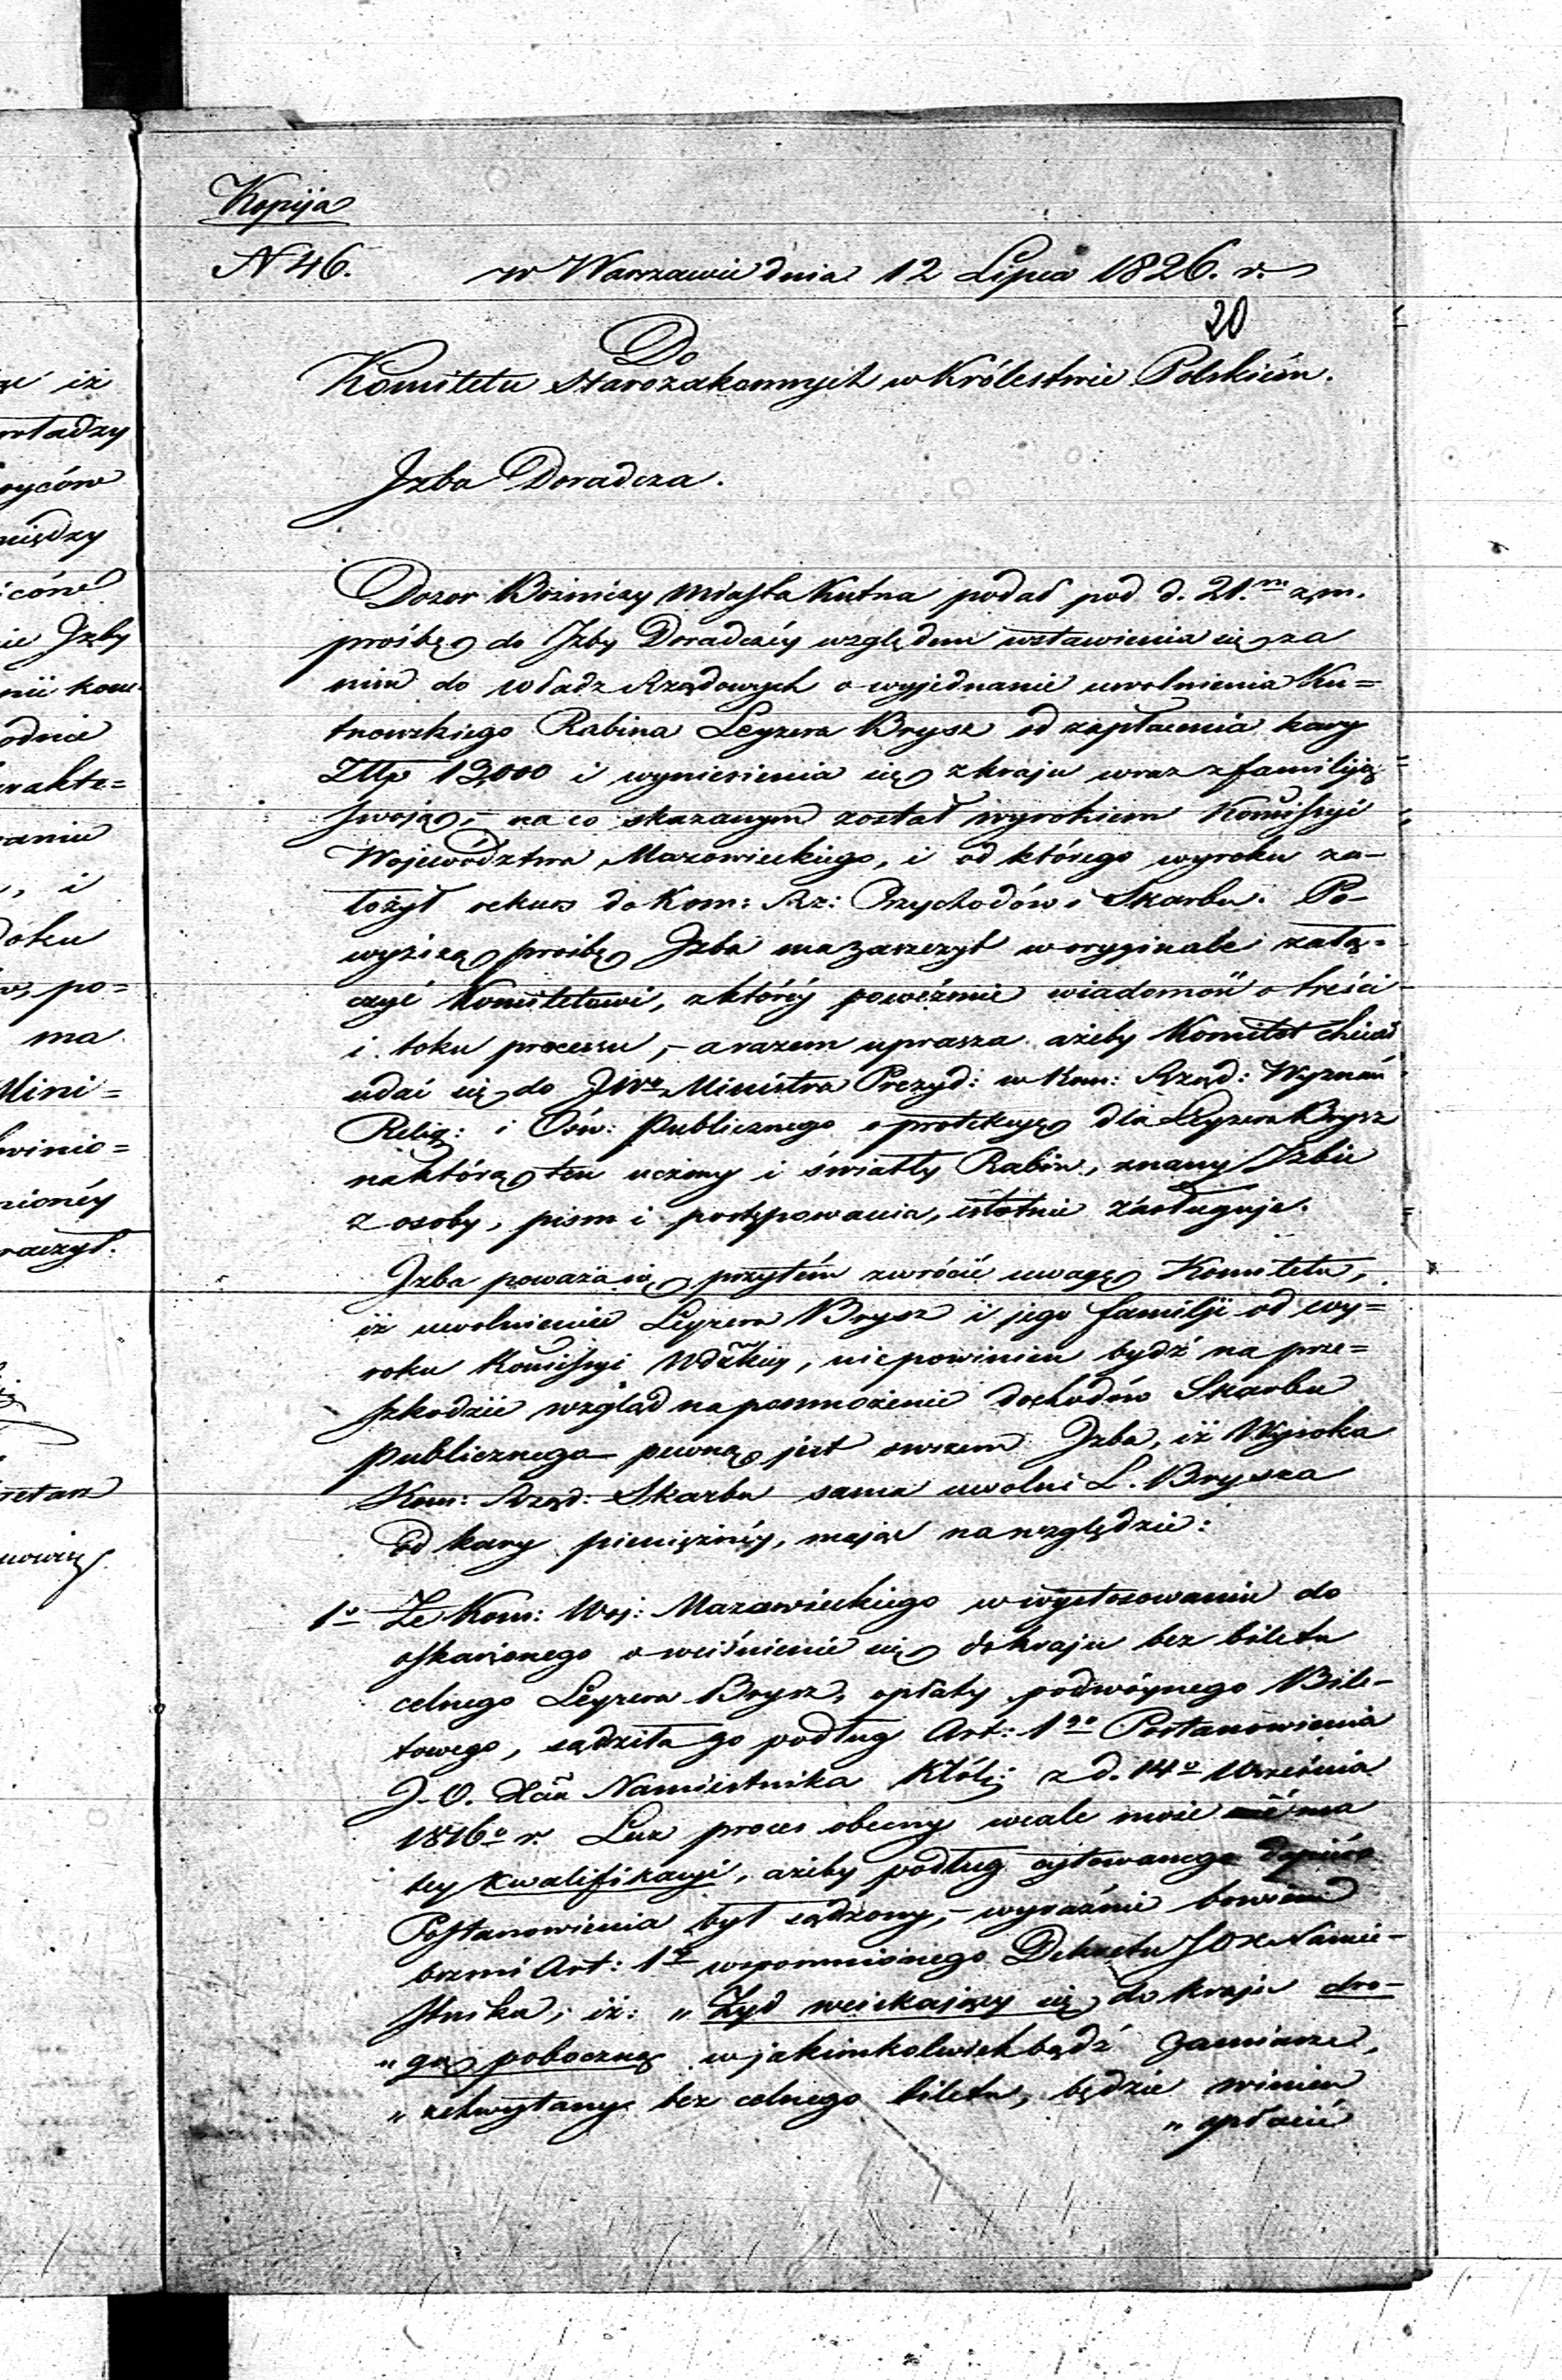 Kopija
N 46.
w Warszawie dnia 12 Lipca 1826. r.
20
Do
Komitetu Starozakonnych w Królestwie Polskiém.
Izba Doradcza.
Dozor Bóżniczy Miasta Kutna podał pod d. 21.m z.m.
prośbę do Izby Doradczéy względem wstawienia się za
nim do Władz Rządowych o wyjednanie uwolnienia Ku=
tnowskiego Rabina Leyzera Brysz od zapłacenia kary
Złlp 13,000 i wyniesienia się z kraju wraz z familiją
swoją,- na co skazanym został wyrokiem Komissyi
Województwa Mazowieckiego, i od którego wyroku za-
łożył rekurs do Kom: Rz: Przychodów i Skarbu. Po-
wyższą prośbę Izba ma zaszczyt w oryginale załą=
czyć Komitetowi, z któréy poweźmie wiadomość o treści
i toku processu,- a razem uprasza ażeby Komitet chciał
udać się do JWo Ministra Prezyd: w Kom: Rząd: Wyznań
Relig: i Ośw: Publicznego o protekcyę dla Leyzera Brysz
na którą ten uczony i światły Rabin, znany Izbie
z osoby, pism i postępowania, istotnie zasługuje.
Izba poważa się przytém zwrócić uwagę Komitetu,
iż uwolnienie Leyzera Brysz i jego familji od wy=
roku Komissyi Wdzkiey, niepowinien bydź na prze=
szkodzie wzgląd na pomnożenie dochodów Skarbu
publicznego pewną jest owszem Izba, iż Wysoka
Kom: Rząd: Skarbu sama uwolni L. Brysza
Od kary pieniężnéy, mając na względzie:
1o Że Kom: Woj: Mazowieckiego w wystosowaniu do
oskarżonego o wciśnienie się do kraju bez biletu
celnego Leyzera Brysz, opłaty podwóynego Bile-
towego, sądziła go podług Art: 1go Postanowienia
J. O. Xcia Namiestnika Król: z d. 14o Września
1816o r. Lecz proces obecny wcale może niema
tey kwalifikacyi, ażeby podług cytowanego dopiéro
Postanowienia był sądzony,- wyraźnie bowiem
brzmi Art: 1o wspomnionego Dekretu JOX Namie-
stnika, iż: „Żyd wciskający się do kraju dro-
„gą poboczną w jakimkolwiekbądź zamiarze,
„schwytany bez celnego biletu, będzie winien
„opłacić
iż
władzy
między
Izby
i
ma
Mini=
winio=